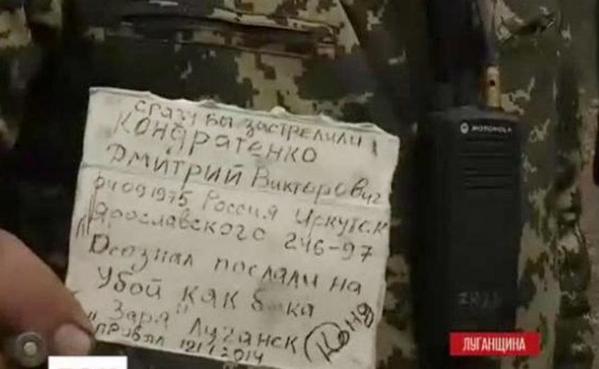 сразу бы застрелили
Кондратенко
Дмитрий Викторович
04 09 1975 Россия Иркутск
Ярославского 246-97
Осознал послали на
убой как быка
"Заря" Луганск
прибыл 2014
Конд
MOTOROLA
ЛУГАНЩИНА